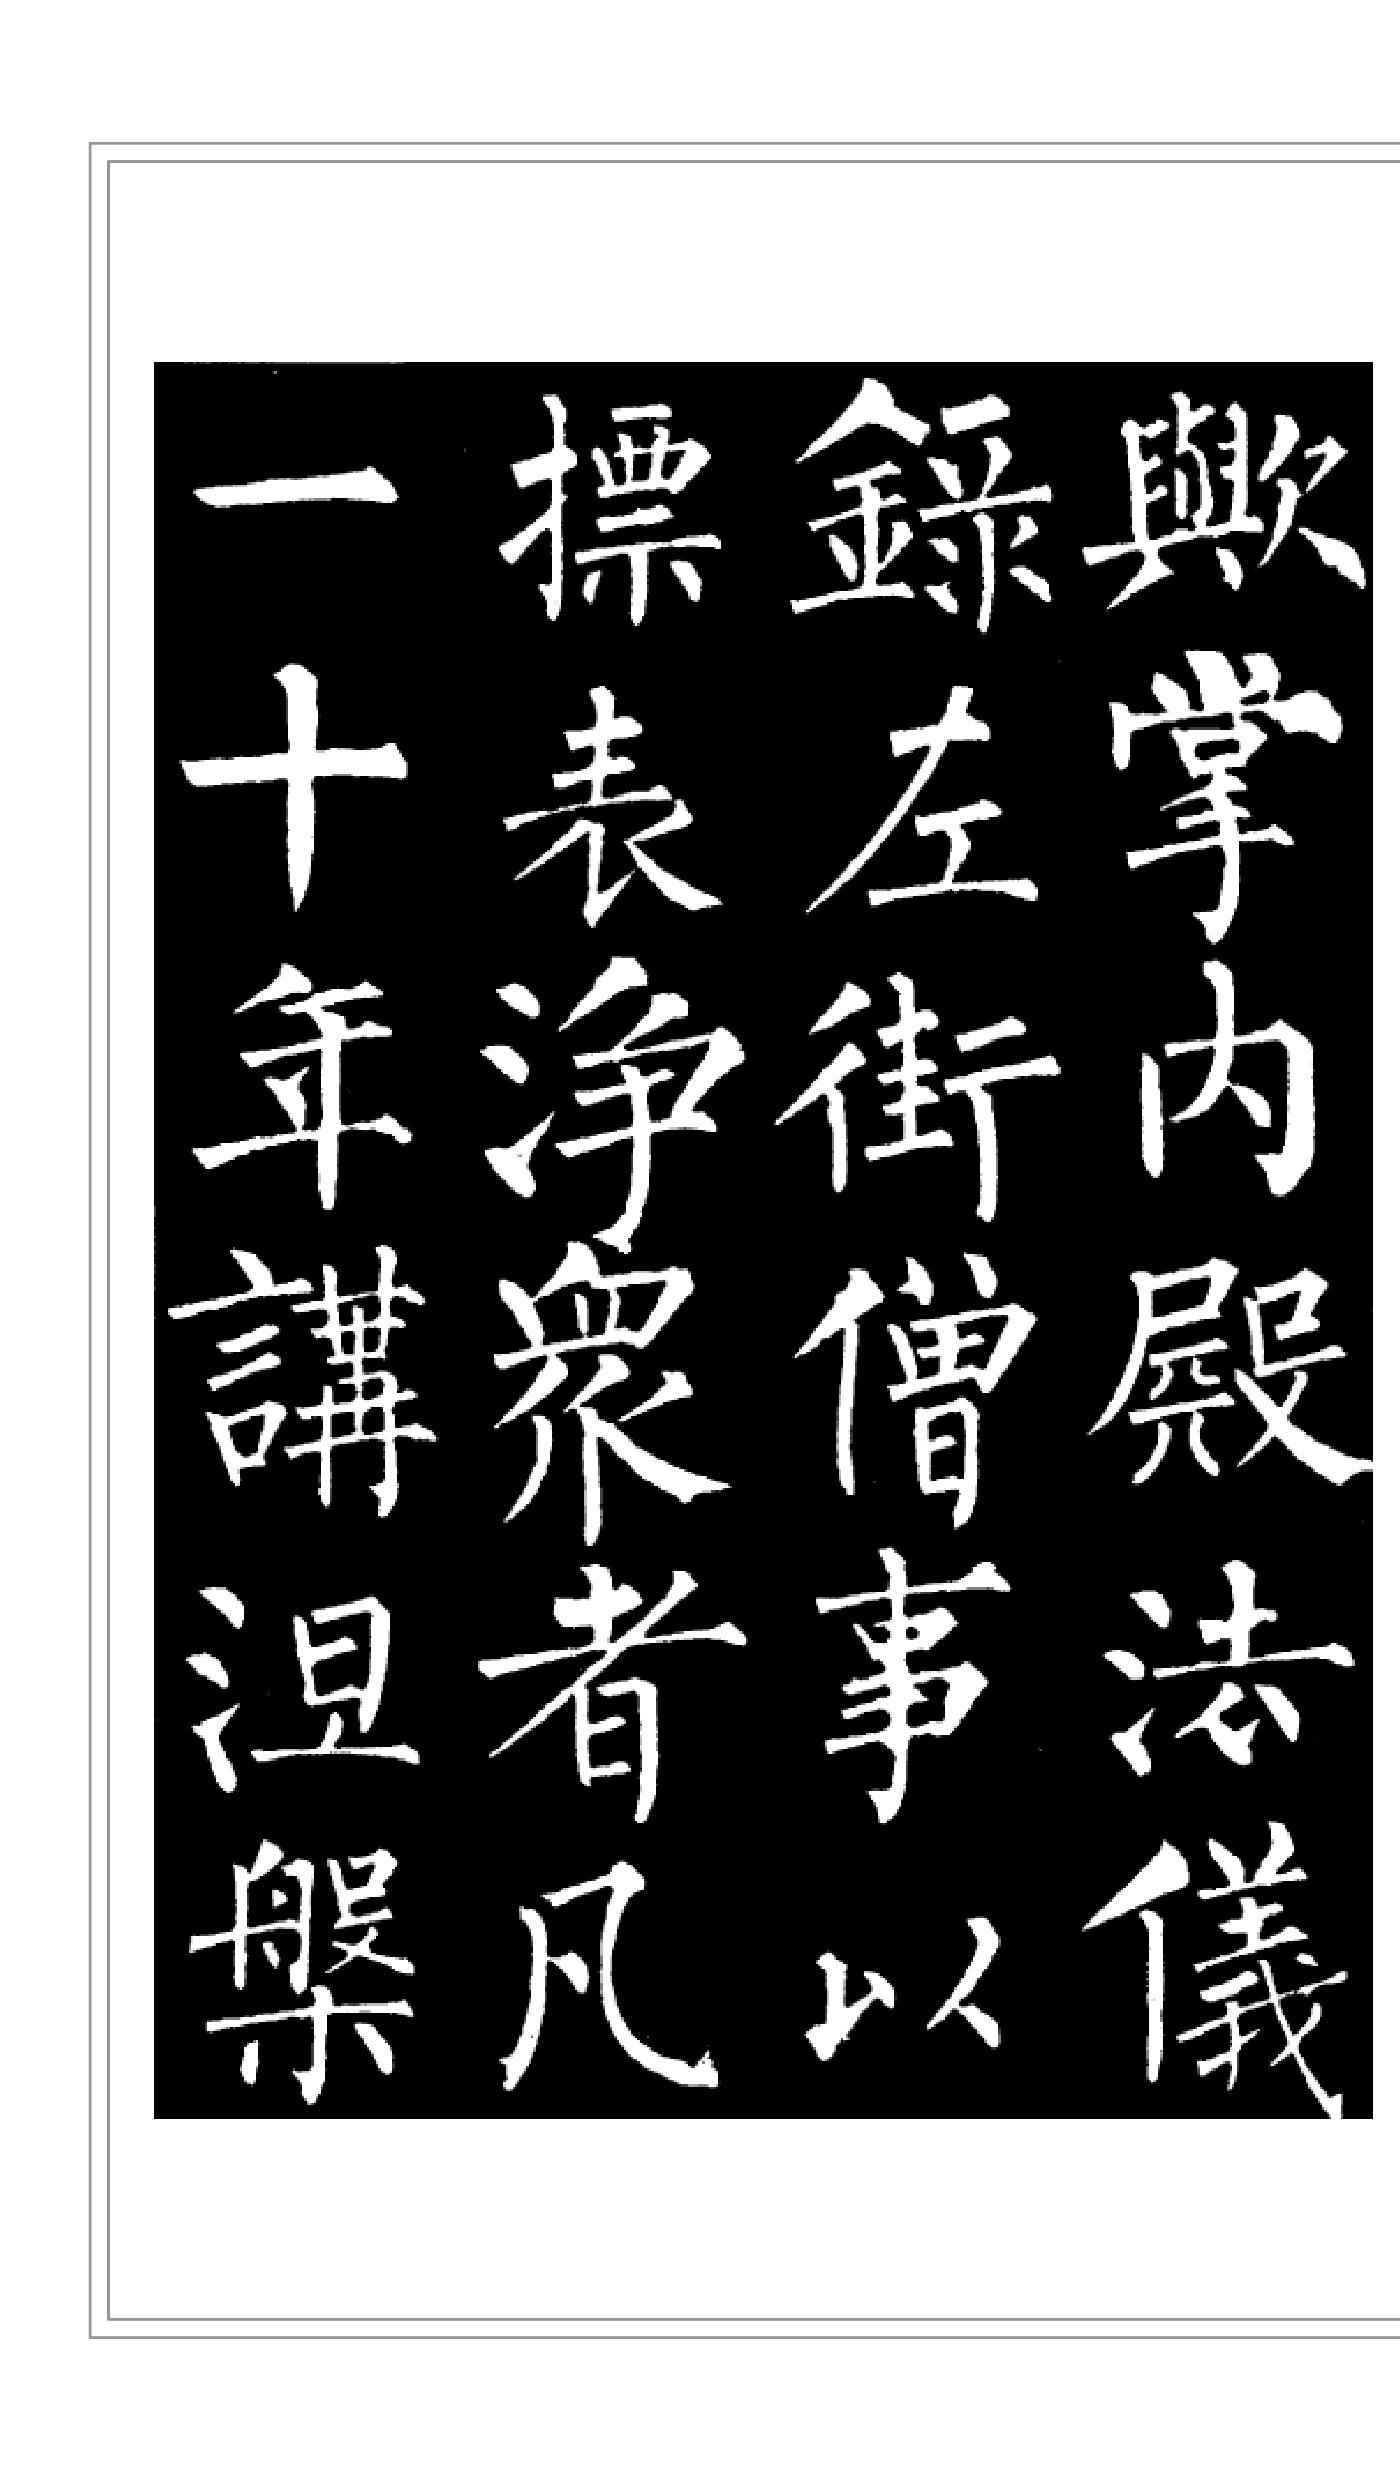 歟掌内殿法儀
錄左街僧事以
摽表淨衆者凡
一十年講涅槃